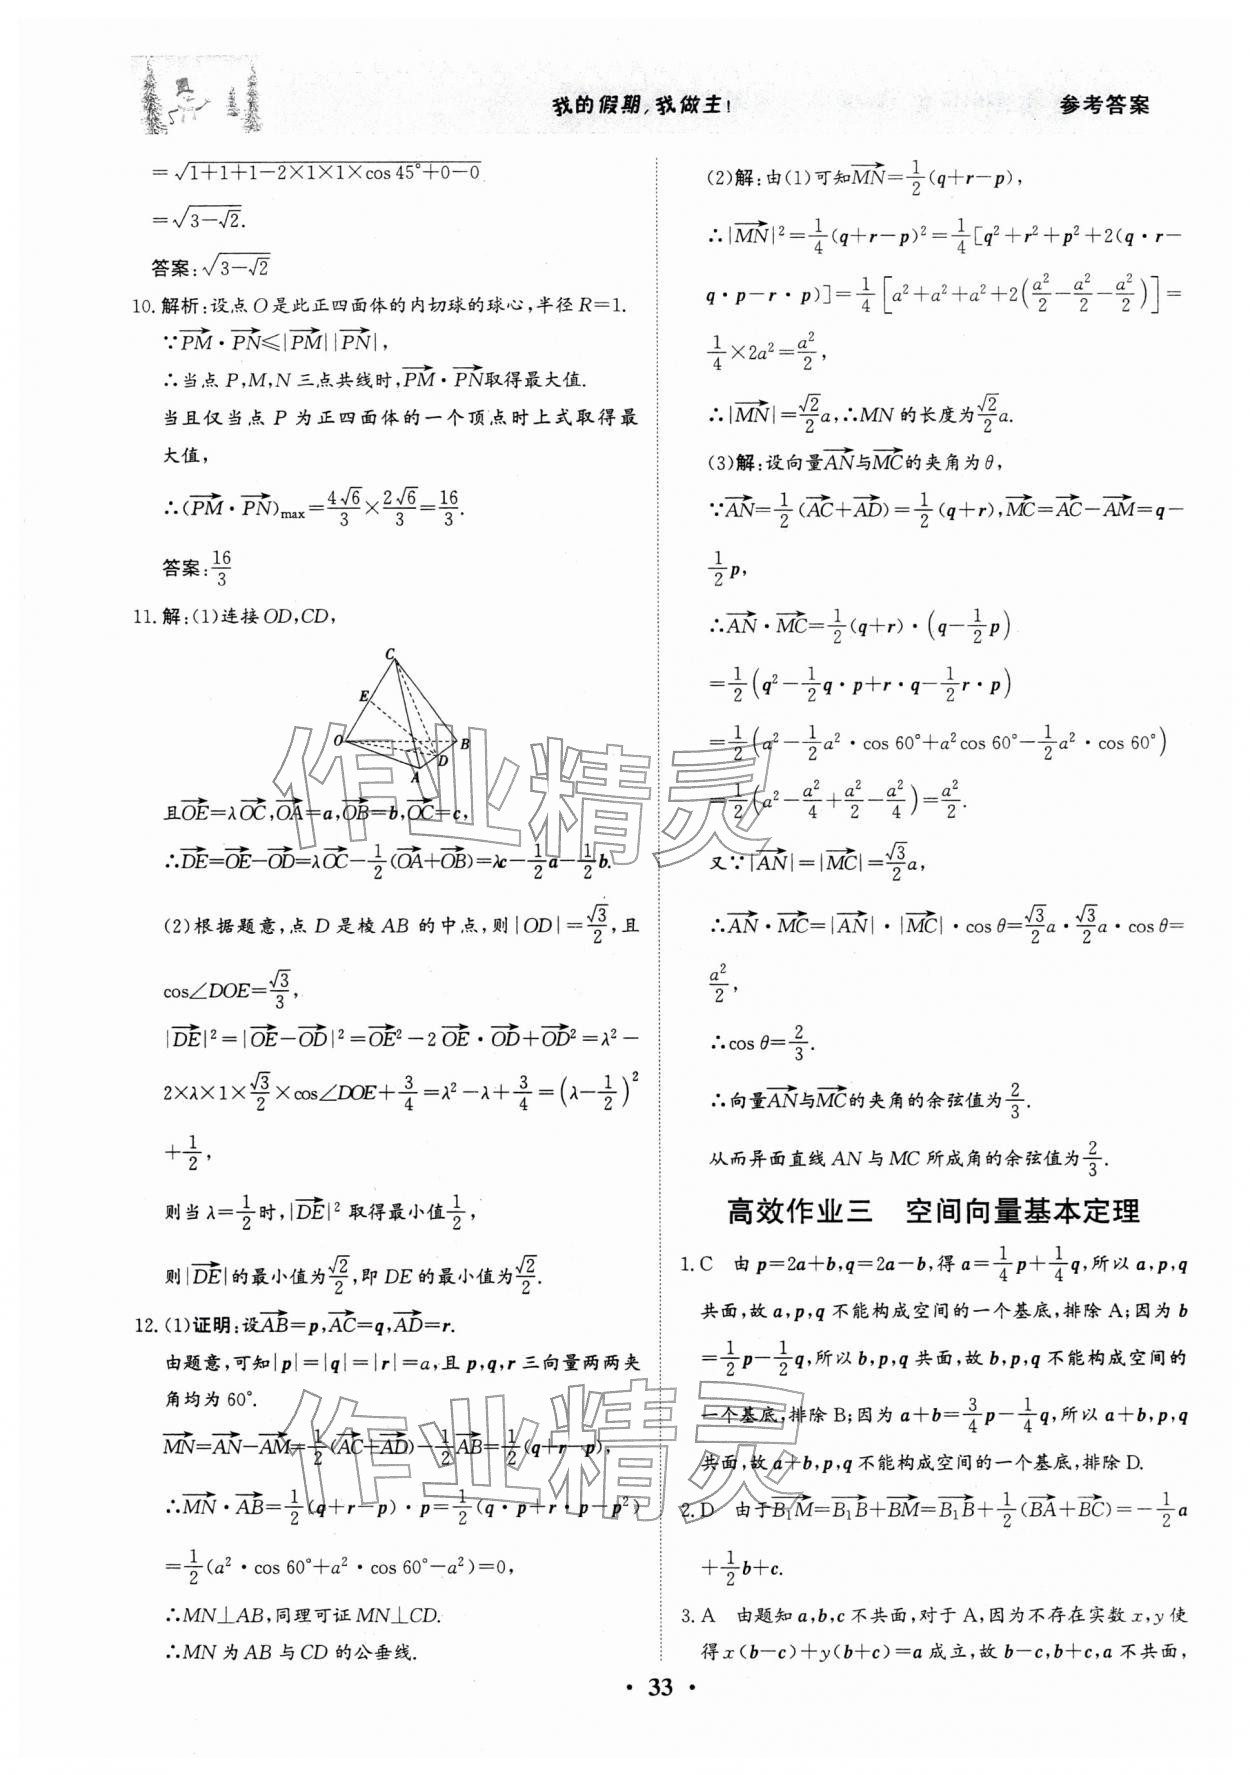 我的假期,我做主!
参考答案
=√(1+1+1-2×1×1×cos 45°+0-0)
=√(3-√2).
答案:√(3-√2)
10.解析:设点 O 是此正四面体的内切球的球心,半径 R=1.
∵PM→·PN→≤|PM→||PN→|,
∴当点 P,M,N 三点共线时,PM→·PN→取得最大值.
当且仅当点 P 为正四面体的一个顶点时上式取得最
大值,
∴(PM→·PN→)max=4√6/3×2√6/3=16/3.
答案:16/3
11.解:(1)连接 OD,CD,
C
E
O
B
D
A
且OE→=λOC→,OA→=a,OB→=b,OC→=c,
∴DE→=OE→-OD→=λOC→-1/2(OA→+OB→)=λc-1/2a-1/2b.
(2)根据题意,点 D 是棱 AB 的中点,则|OD|=√3/2,且
cos∠DOE=√3/3,
|DE→|²=|OE→-OD→|²=OE→²-2OE→·OD→+OD→²=λ²-
2×λ×1×√3/2×cos∠DOE+3/4=λ²-λ+3/4=(λ-1/2)²
+1/2,
则当 λ=1/2时,|DE→|²取得最小值1/2,
则|DE→|的最小值为√2/2,即 DE 的最小值为√2/2.
12.(1)证明:设AB→=p,AC→=q,AD→=r.
由题意,可知|p|=|q|=|r|=a,且 p,q,r 三向量两两夹
角均为 60°.
MN→=AN→-AM→=1/2(AC→+AD→)-1/2AB→=1/2(q+r-p),
∴MN→·AB→=1/2(q+r-p)·p=1/2(q·p+r·p-p²)
=1/2(a²·cos 60°+a²·cos 60°-a²)=0,
∴MN⊥AB,同理可证 MN⊥CD.
∴MN 为 AB 与 CD 的公垂线.
(2)解:由(1)可知MN→=1/2(q+r-p),
∴|MN→|²=1/4(q+r-p)²=1/4[q²+r²+p²+2(q·r-
q·p-r·p)]=1/4[a²+a²+a²+2(a²/2-a²/2-a²/2)]=
1/4×2a²=a²/2,
∴|MN→|=√2/2a,∴MN 的长度为√2/2a.
(3)解:设向量AN→与MC→的夹角为 θ,
∵AN→=1/2(AC→+AD→)=1/2(q+r),MC→=AC→-AM→=q-
1/2p,
∴AN→·MC→=1/2(q+r)·(q-1/2p)
=1/2(q²-1/2q·p+r·q-1/2r·p)
=1/2(a²-1/2a²·cos 60°+a²cos 60°-1/2a²·cos 60°)
=1/2(a²-a²/4+a²/2-a²/4)=a²/2.
又∵|AN→|=|MC→|=√3/2a,
∴AN→·MC→=|AN→|·|MC→|·cos θ=√3/2a·√3/2a·cos θ=
a²/2,
∴cos θ=2/3.
∴向量AN→与MC→的夹角的余弦值为2/3.
从而异面直线 AN 与 MC 所成角的余弦值为2/3.
高效作业三 空间向量基本定理
1.C 由 p=2a+b,q=2a-b,得 a=1/4p+1/4q,所以 a,p,q
共面,故 a,p,q 不能构成空间的一个基底,排除 A;因为 b
=1/2p-1/2q,所以 b,p,q 共面,故 b,p,q 不能构成空间的
一个基底,排除 B;因为 a+b=3/4p-1/4q,所以 a+b,p,q
共面,故 a+b,p,q 不能构成空间的一个基底,排除 D.
2.D 由于B₁M→=B₁B→+BM→=B₁B→+1/2(BA→+BC→)=-1/2a
+1/2b+c.
3.A 由题知 a,b,c 不共面,对于 A,因为不存在实数 x,y 使
得 x(b-c)+y(b+c)=a 成立,故 b-c,b+c,a 不共面,
·33·
作业精灵
作业精灵